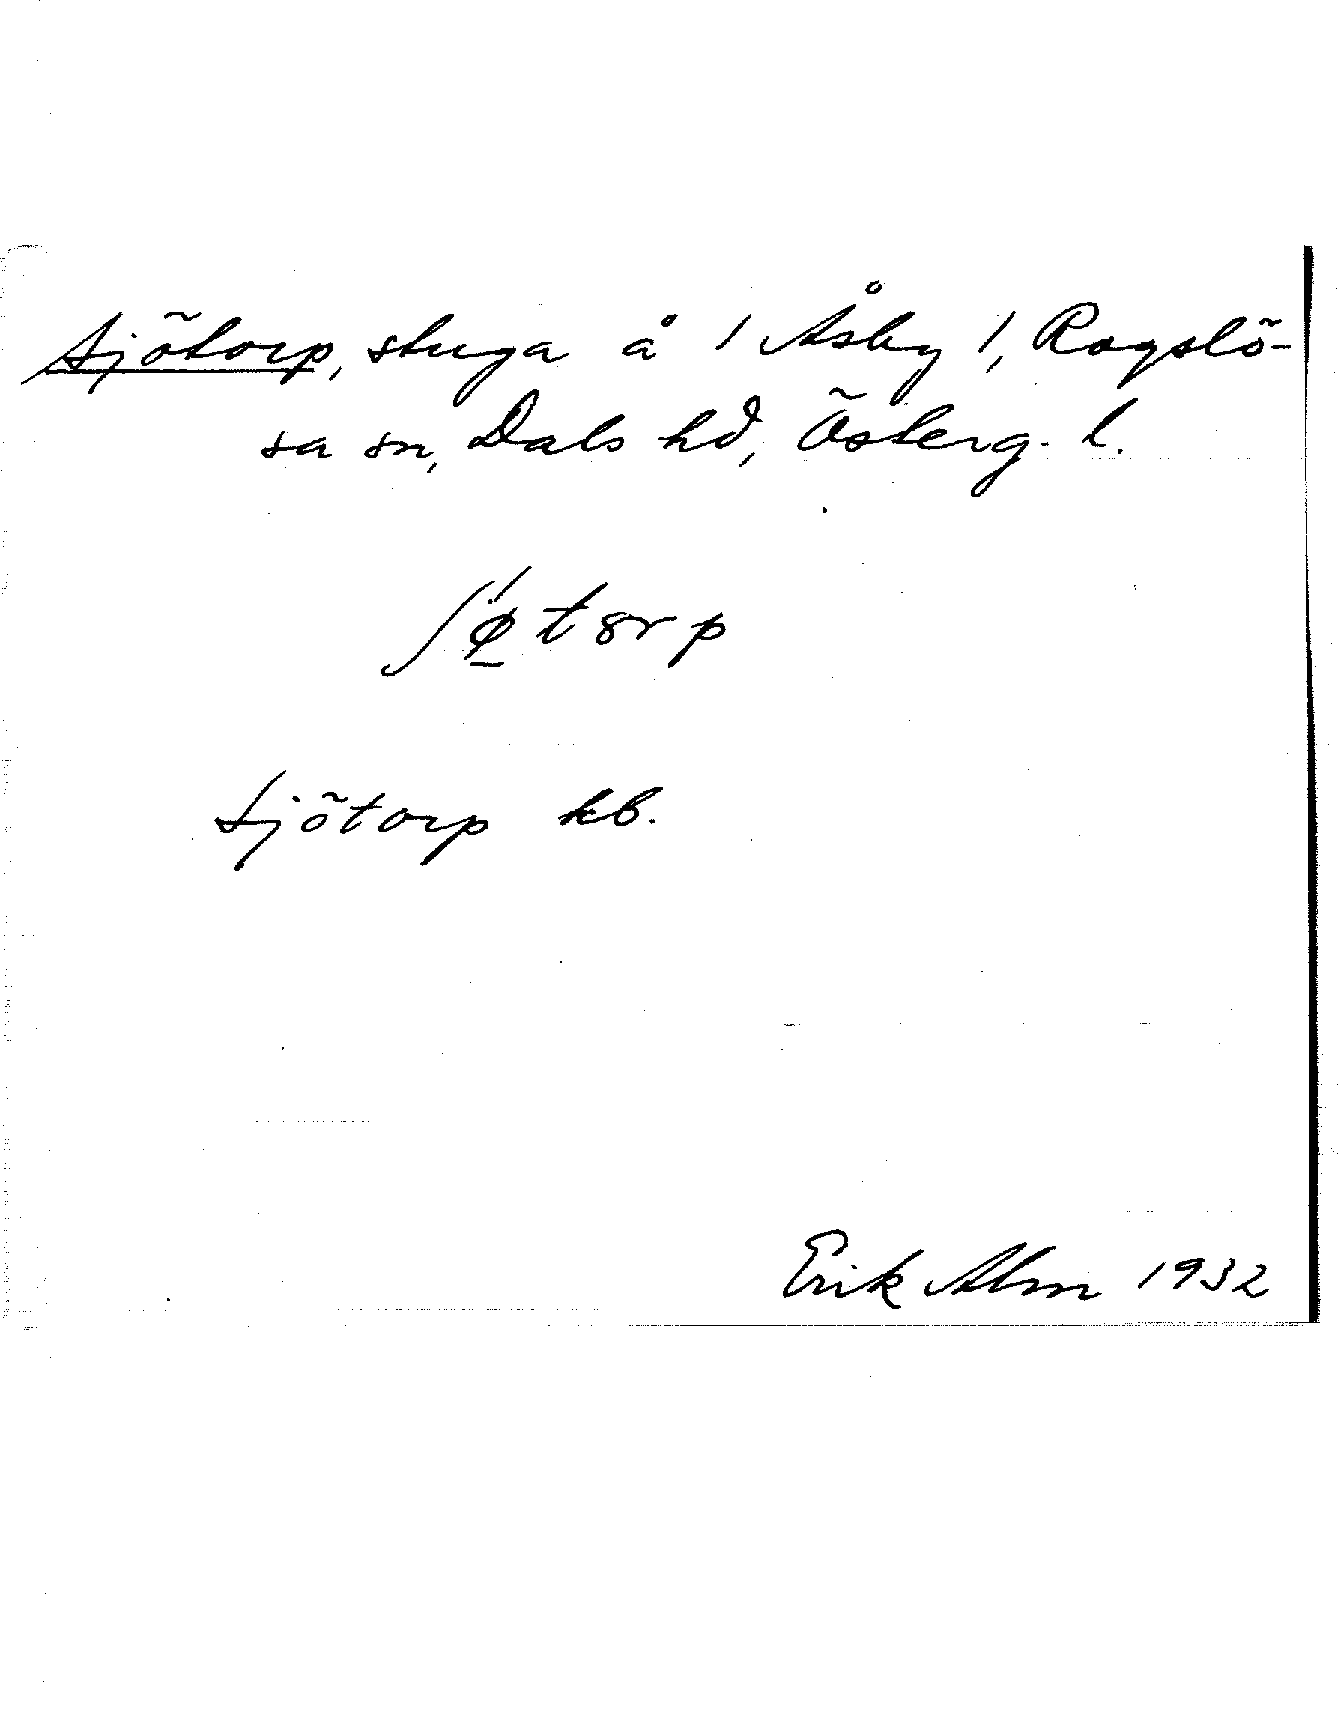 Sjötorp, stuga å 1 Åsby 1, Rogslö-
sa sn, Dals hd, Österg. l.
ʃǿ̱t8rp
Sjötorp kb.
Erik Alm 1932